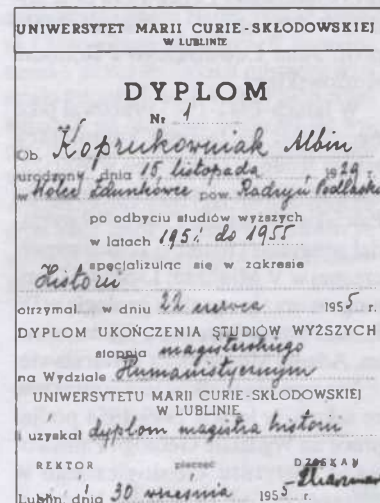 UNIWERSYTET MARII CURIE-SKŁODOWSKIEJ
W LUBLINIE
DYPLOM
Nr 1
Ob. Koprukowniak Albin
urodzony dnia 15 listopada 1929 r.
w Wólce Zdunkówce pow. Radzyń Podlaski
po odbyciu studiów wyższych
w latach 1951 do 1955
specjalizując się w zakresie
Historii
otrzymał w dniu 22 czerwca 1955 r.
DYPLOM UKOŃCZENIA STUDIÓW WYŻSZYCH
stopnia magisterskiego
na Wydziale Humanistycznym
UNIWERSYTETU MARII CURIE-SKŁODOWSKIEJ
W LUBLINIE
i uzyskał dyplom magistra historii
REKTOR pieczęć DZIEKAN
Lublin, dnia 30 września 1955 r.